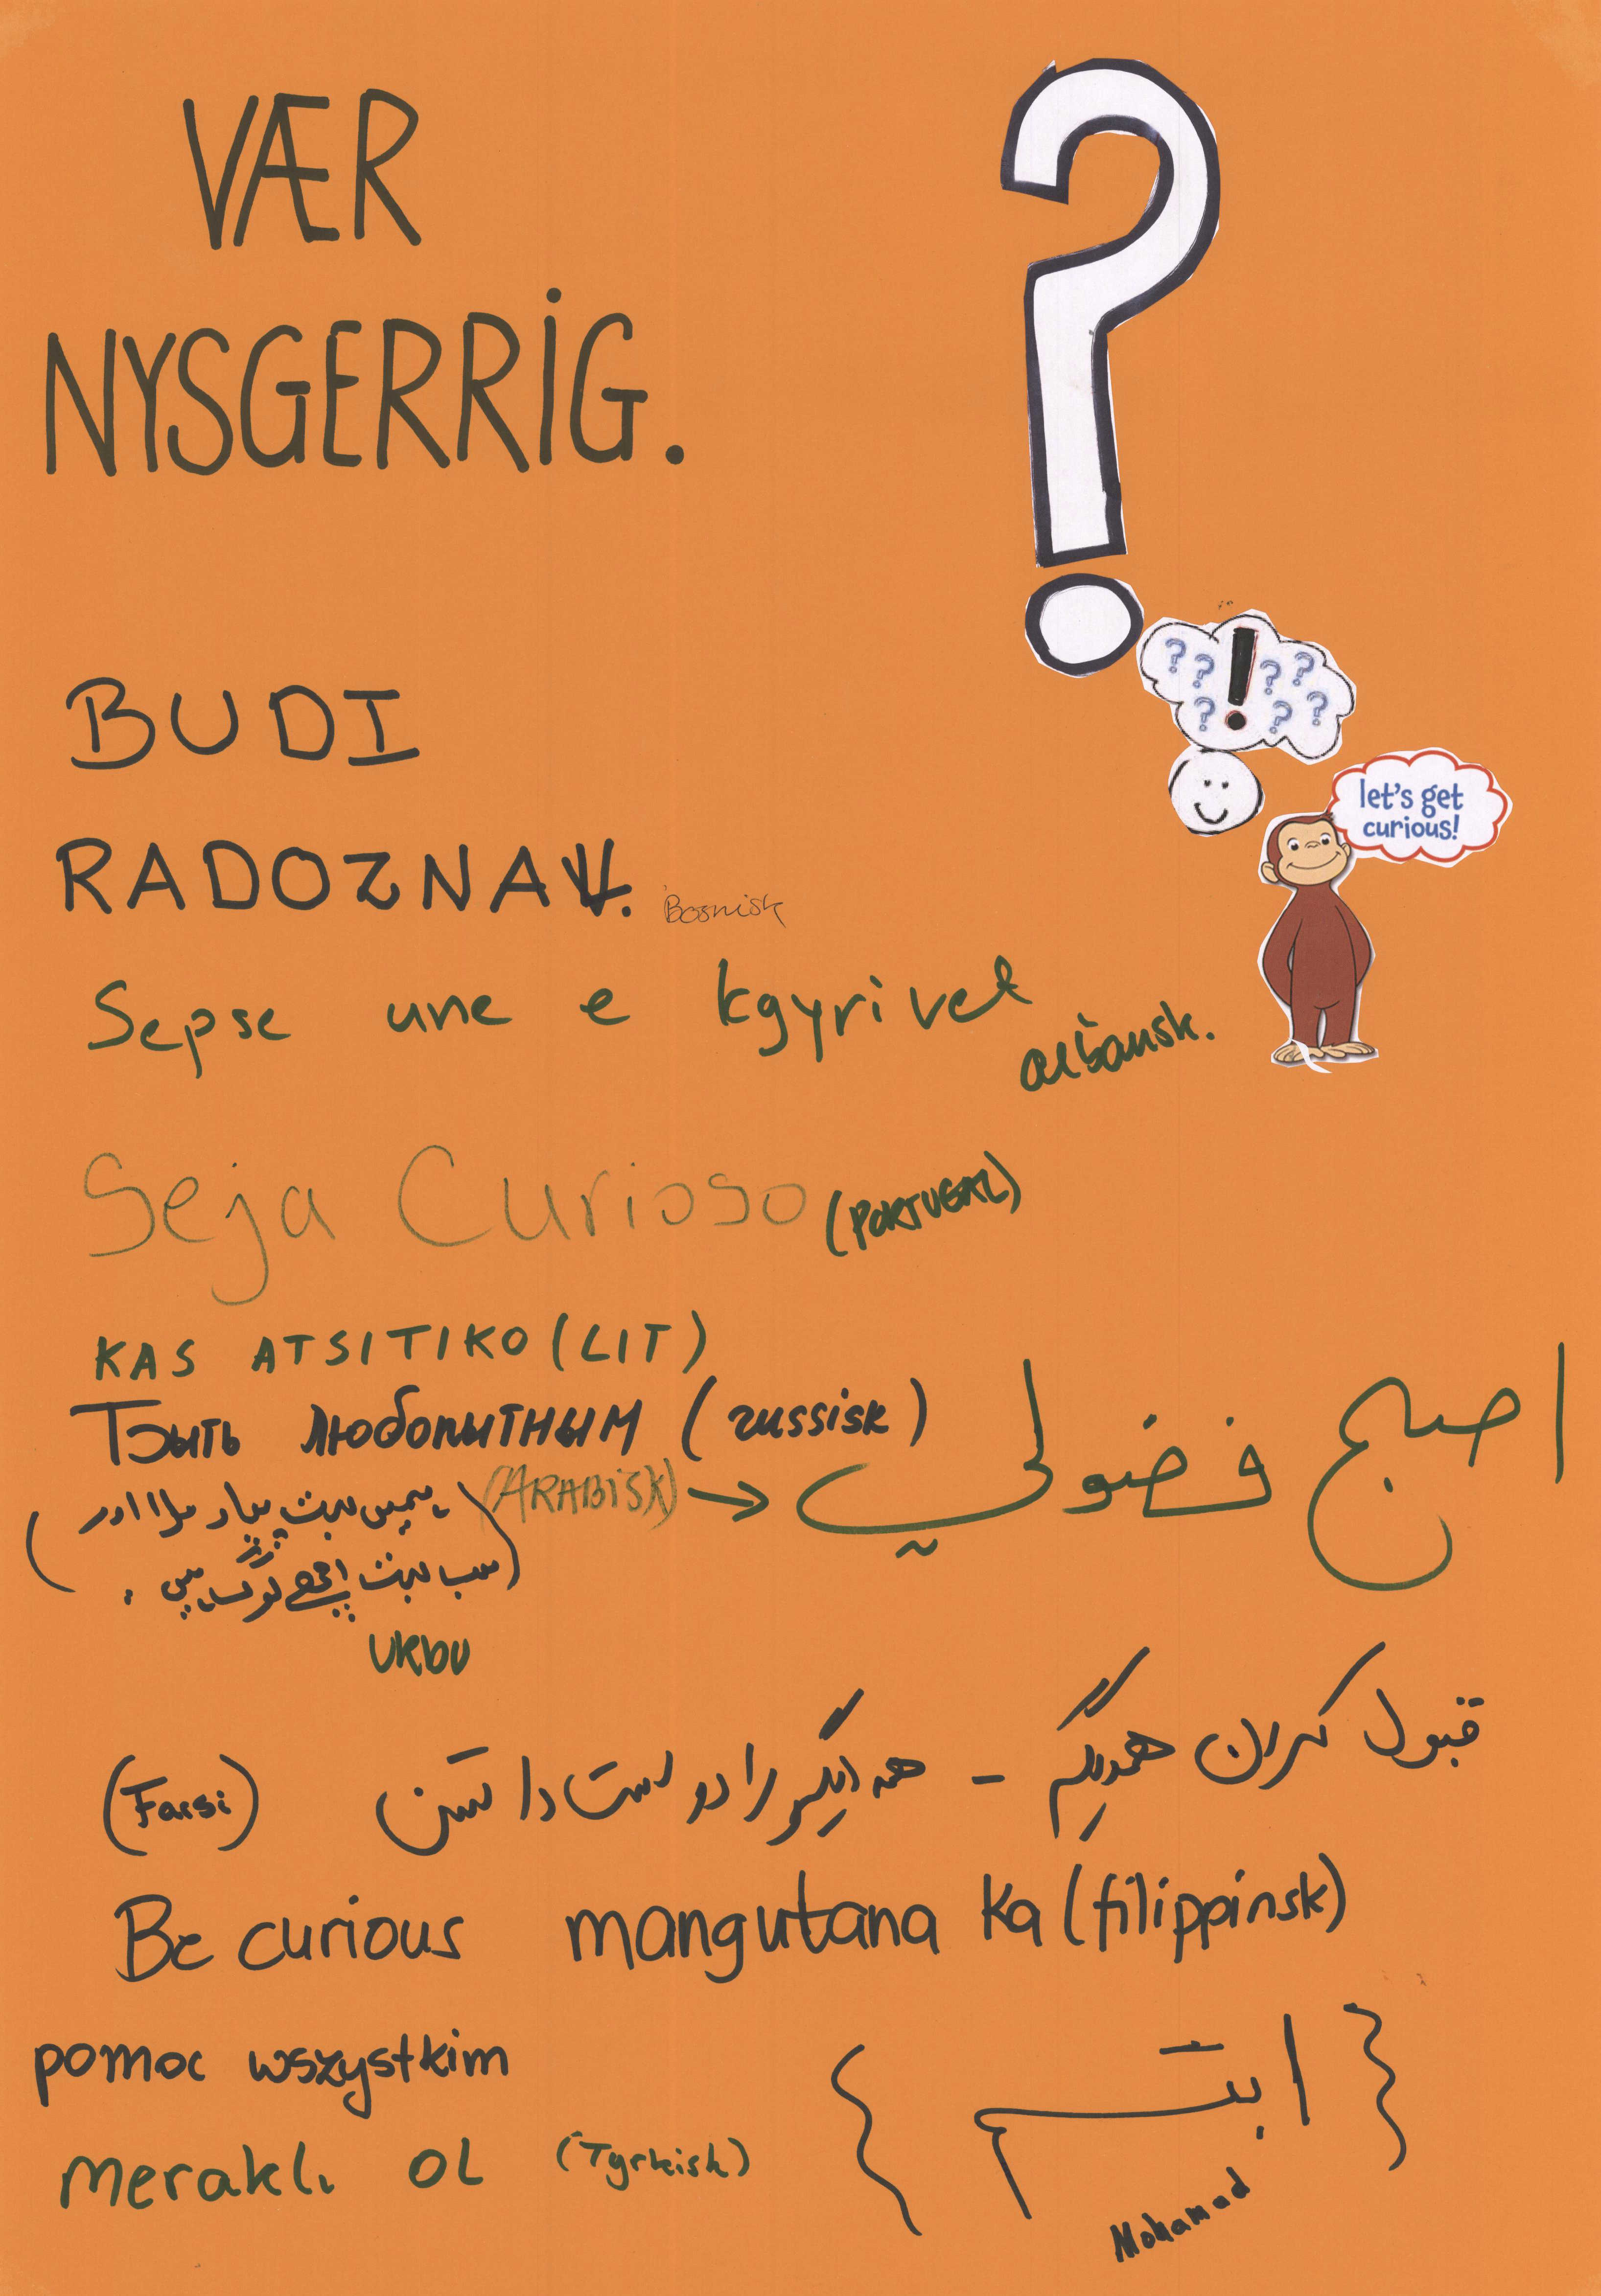 VÆR
NYSGERRIG.
? ? ! ? ? ? ? ?
let's get
curious!
BUDI
RADOZNAV. Bosnisk
Sepse une e kgyrivet
albansk.
Seja Curioso (PORTUGAL)
KAS ATSITIKO (LIT)
Быть любопитным (russisk)
اصبح فضولي
(ARABISK) →
سب بہت اچھے لوگ ہیں
URDU
قبول کردن همدیگر - همدیگر را دوست داشتن
(Farsi)
Be curious mangutana ka (filippinsk)
pomoc wszystkim
meraklı OL (Tyrkisk)
{ ابتسم }
Mohamad